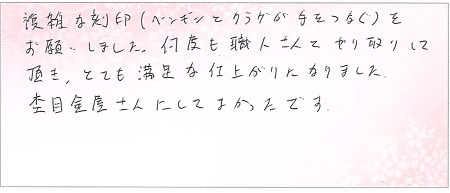 複雑な刻印(ペンギンとクラゲが手をつなぐ)を
お願いしました。何度も職人さんとやり取りして
頂き、とても満足な仕上がりになりました。
杢目金屋さんにしてよかったです。